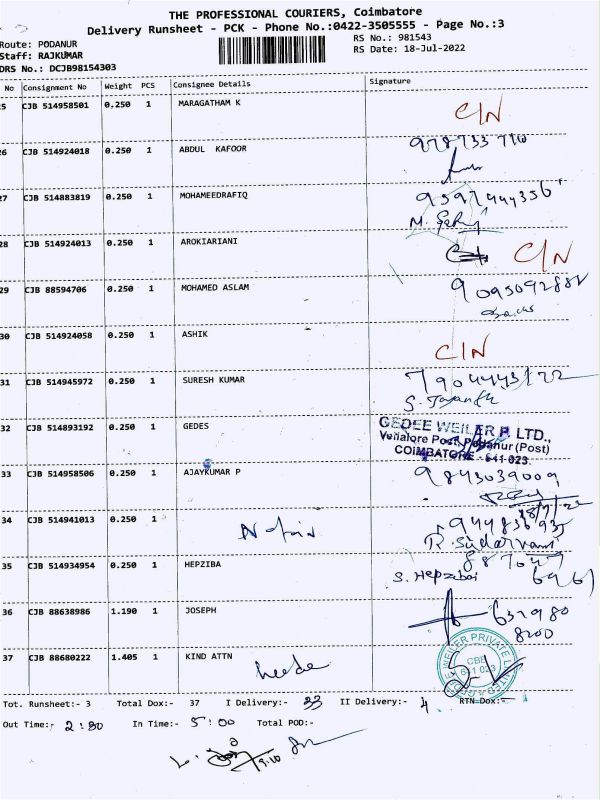 THE PROFESSIONAL COURIERS, Coimbatore
Delivery Runsheet - PCK - Phone No.:0422-3505555 - Page No.:3
Route: PODANUR
RS No.: 981543
Staff: RAJKUMAR
RS Date: 18-Jul-2022
DRS No.: DCJB98154303
No Consignment No Weight PCS Consignee Details Signature
5 CJB 514958501 0.250 1 MARAGATHAM K C/N
26 CJB 514924018 0.250 1 ABDUL KAFOOR
27 CJB 514883819 0.250 1 MOHAMEEDRAFIQ
28 CJB 514924013 0.250 1 AROKIARIANI C/N
29 CJB 88594706 0.250 1 MOHAMED ASLAM 9095092882
30 CJB 514924058 0.250 1 ASHIK C/N
31 CJB 514945972 0.250 1 SURESH KUMAR 7904443122
32 CJB 514893192 0.250 1 GEDES
GEDEE WEILER P. LTD.,
Vellalore Post, Podanur (Post)
COIMBATORE - 641 023
33 CJB 514958506 0.250 1 AJAYKUMAR P 9843039009
18/7/22
34 CJB 514941013 0.250 1
35 CJB 514934954 0.250 1 HEPZIBA S. Hepzibai
36 CJB 88638986 1.190 1 JOSEPH 632980
8200
37 CJB 88680222 1.405 1 KIND ATTN
GEDEE WEILER PRIVATE LIMITED
CBE
641 023
Tot. Runsheet:- 3 Total Dox:- 37 I Delivery:- 33 II Delivery:- 4 RTN Dox:-
Out Time:- 2:30 In Time:- 5:00 Total POD:-